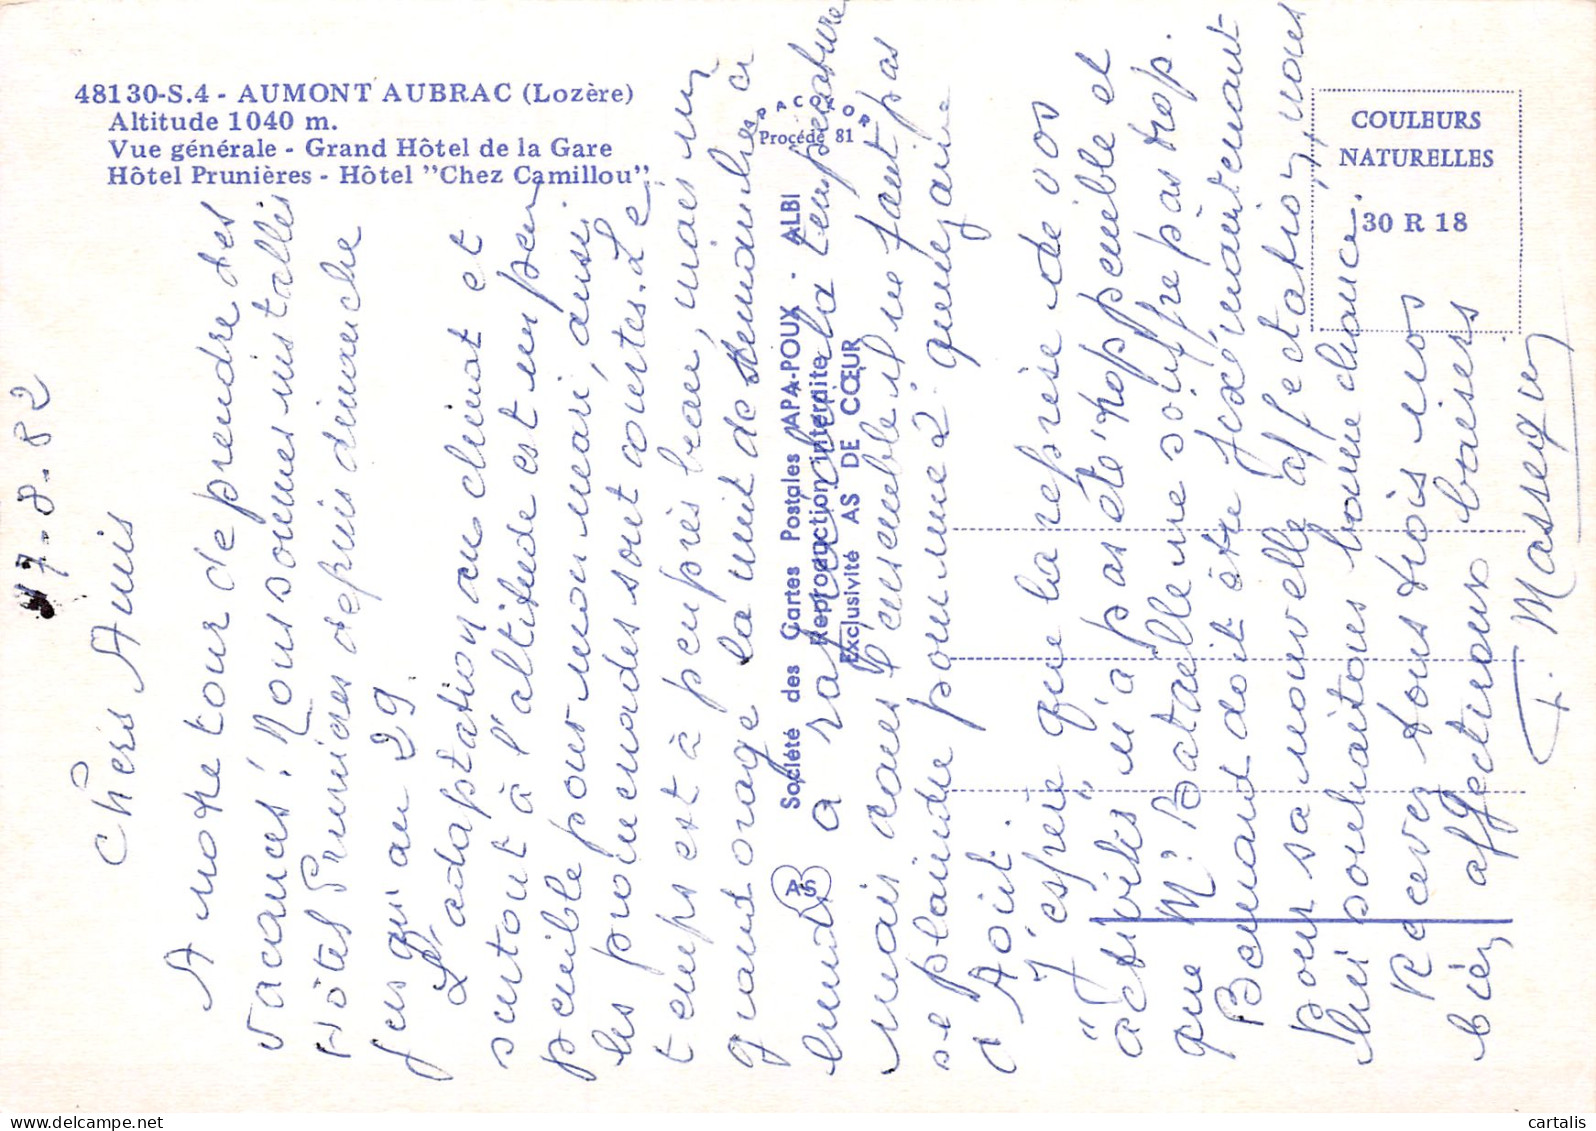 48130-S.4 - AUMONT AUBRAC (Lozère)
Altitude 1040 m.
Vue générale - Grand Hôtel de la Gare
Hôtel Prunières - Hôtel "Chez Camillou"
PACCOLOR
Procédé 81
COULEURS
NATURELLES
30 R 18
Société des Cartes Postales APA-POUX - ALBI
Reproduction interdite
Exclusivité AS DE CŒUR
AS
17-8-82
Chers Amis
A notre tour de prendre des
vacances! Nous sommes installés
Hôtel Prunières depuis dimanche
jusqu'au 29.
L'adaptation au climat et
surtout à l'altitude est un peu
penible pour mon mari, aussi
les promenades sont courtes. Le
temps est à peu près beau, mais un
grand orage la nuit de dimanche à
lundi a rafraichi la température
mais dans l'ensemble il ne faut pas
se plaindre pour une 2e quinzaine
d'Août.
J'espère que la reprise de vos
"activités" n'a pas été trop penible et
que Me Bataelle ne souffre pas trop.
Bernard doit être fixé maintenant
pour sa nouvelle affectation, nous
lui souhaitons bonne chance.
Recevez tous trois nos
bien affectueux baisers
F. Massequin
cartalis